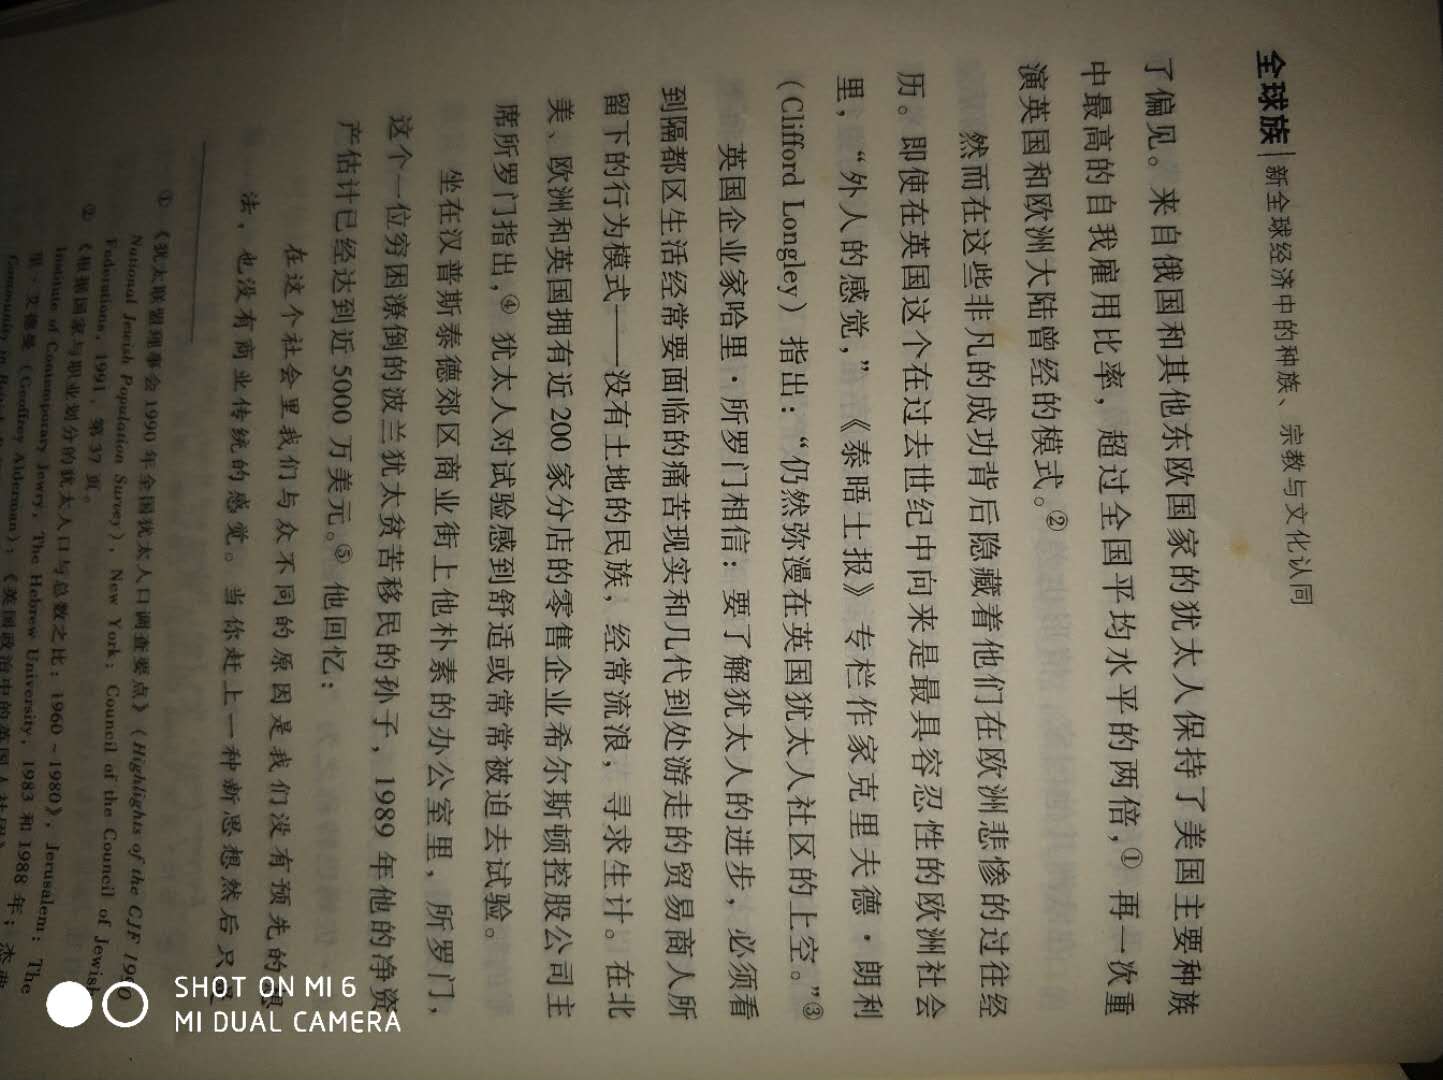 全球族 | 新全球经济中的种族、宗教与文化认同
了偏见。来自俄国和其他东欧国家的犹太人保持了美国主要种族
中最高的自我雇用比率，超过全国平均水平的两倍，① 再一次重
演英国和欧洲大陆曾经的模式。②
然而在这些非凡的成功背后隐藏着他们在欧洲悲惨的过往经
历。即使在英国这个在过去世纪中向来是最具容忍性的欧洲社会
里，“外人的感觉，”《泰晤士报》专栏作家克里夫德·朗利
(Clifford Longley) 指出：“仍然弥漫在英国犹太人社区的上空。”③
英国企业家哈里·所罗门相信：要了解犹太人的进步，必须看
到隔都区生活经常要面临的痛苦现实和几代到处游走的贸易商人所
留下的行为模式——没有土地的民族，经常流浪，寻求生计。在北
美、欧洲和英国拥有近 200 家分店的零售企业希尔斯顿控股公司主
席所罗门指出，④ 犹太人对试验感到舒适或常常被迫去试验。
坐在汉普斯泰德郊区商业街上他朴素的办公室里，所罗门，
这个一位穷困潦倒的波兰犹太贫苦移民的孙子，1989 年他的净资
产估计已经达到近 5000 万美元。⑤ 他回忆：
在这个社会里我们与众不同的原因是我们没有预先的想
法，也没有商业传统的感觉。当你赶上一种新思想然后只是
① 《犹太联盟理事会 1990 年全国犹太人口调查要点》(Highlights of the CJF 1990
National Jewish Population Survey), New York: Council of the Council of Jewish
Federations, 1991, 第 37 页。
② 《根据国家与职业划分的犹太人口与总数之比：1960～1980》, Jerusalem: The
Institute of Contemporary Jewry, The Hebrew University, 1983 和 1988 年；杰弗
里·艾德曼 (Geoffrey Alderman):《英国政治中的英国人社团》
Community in British
SHOT ON MI 6
MI DUAL CAMERA